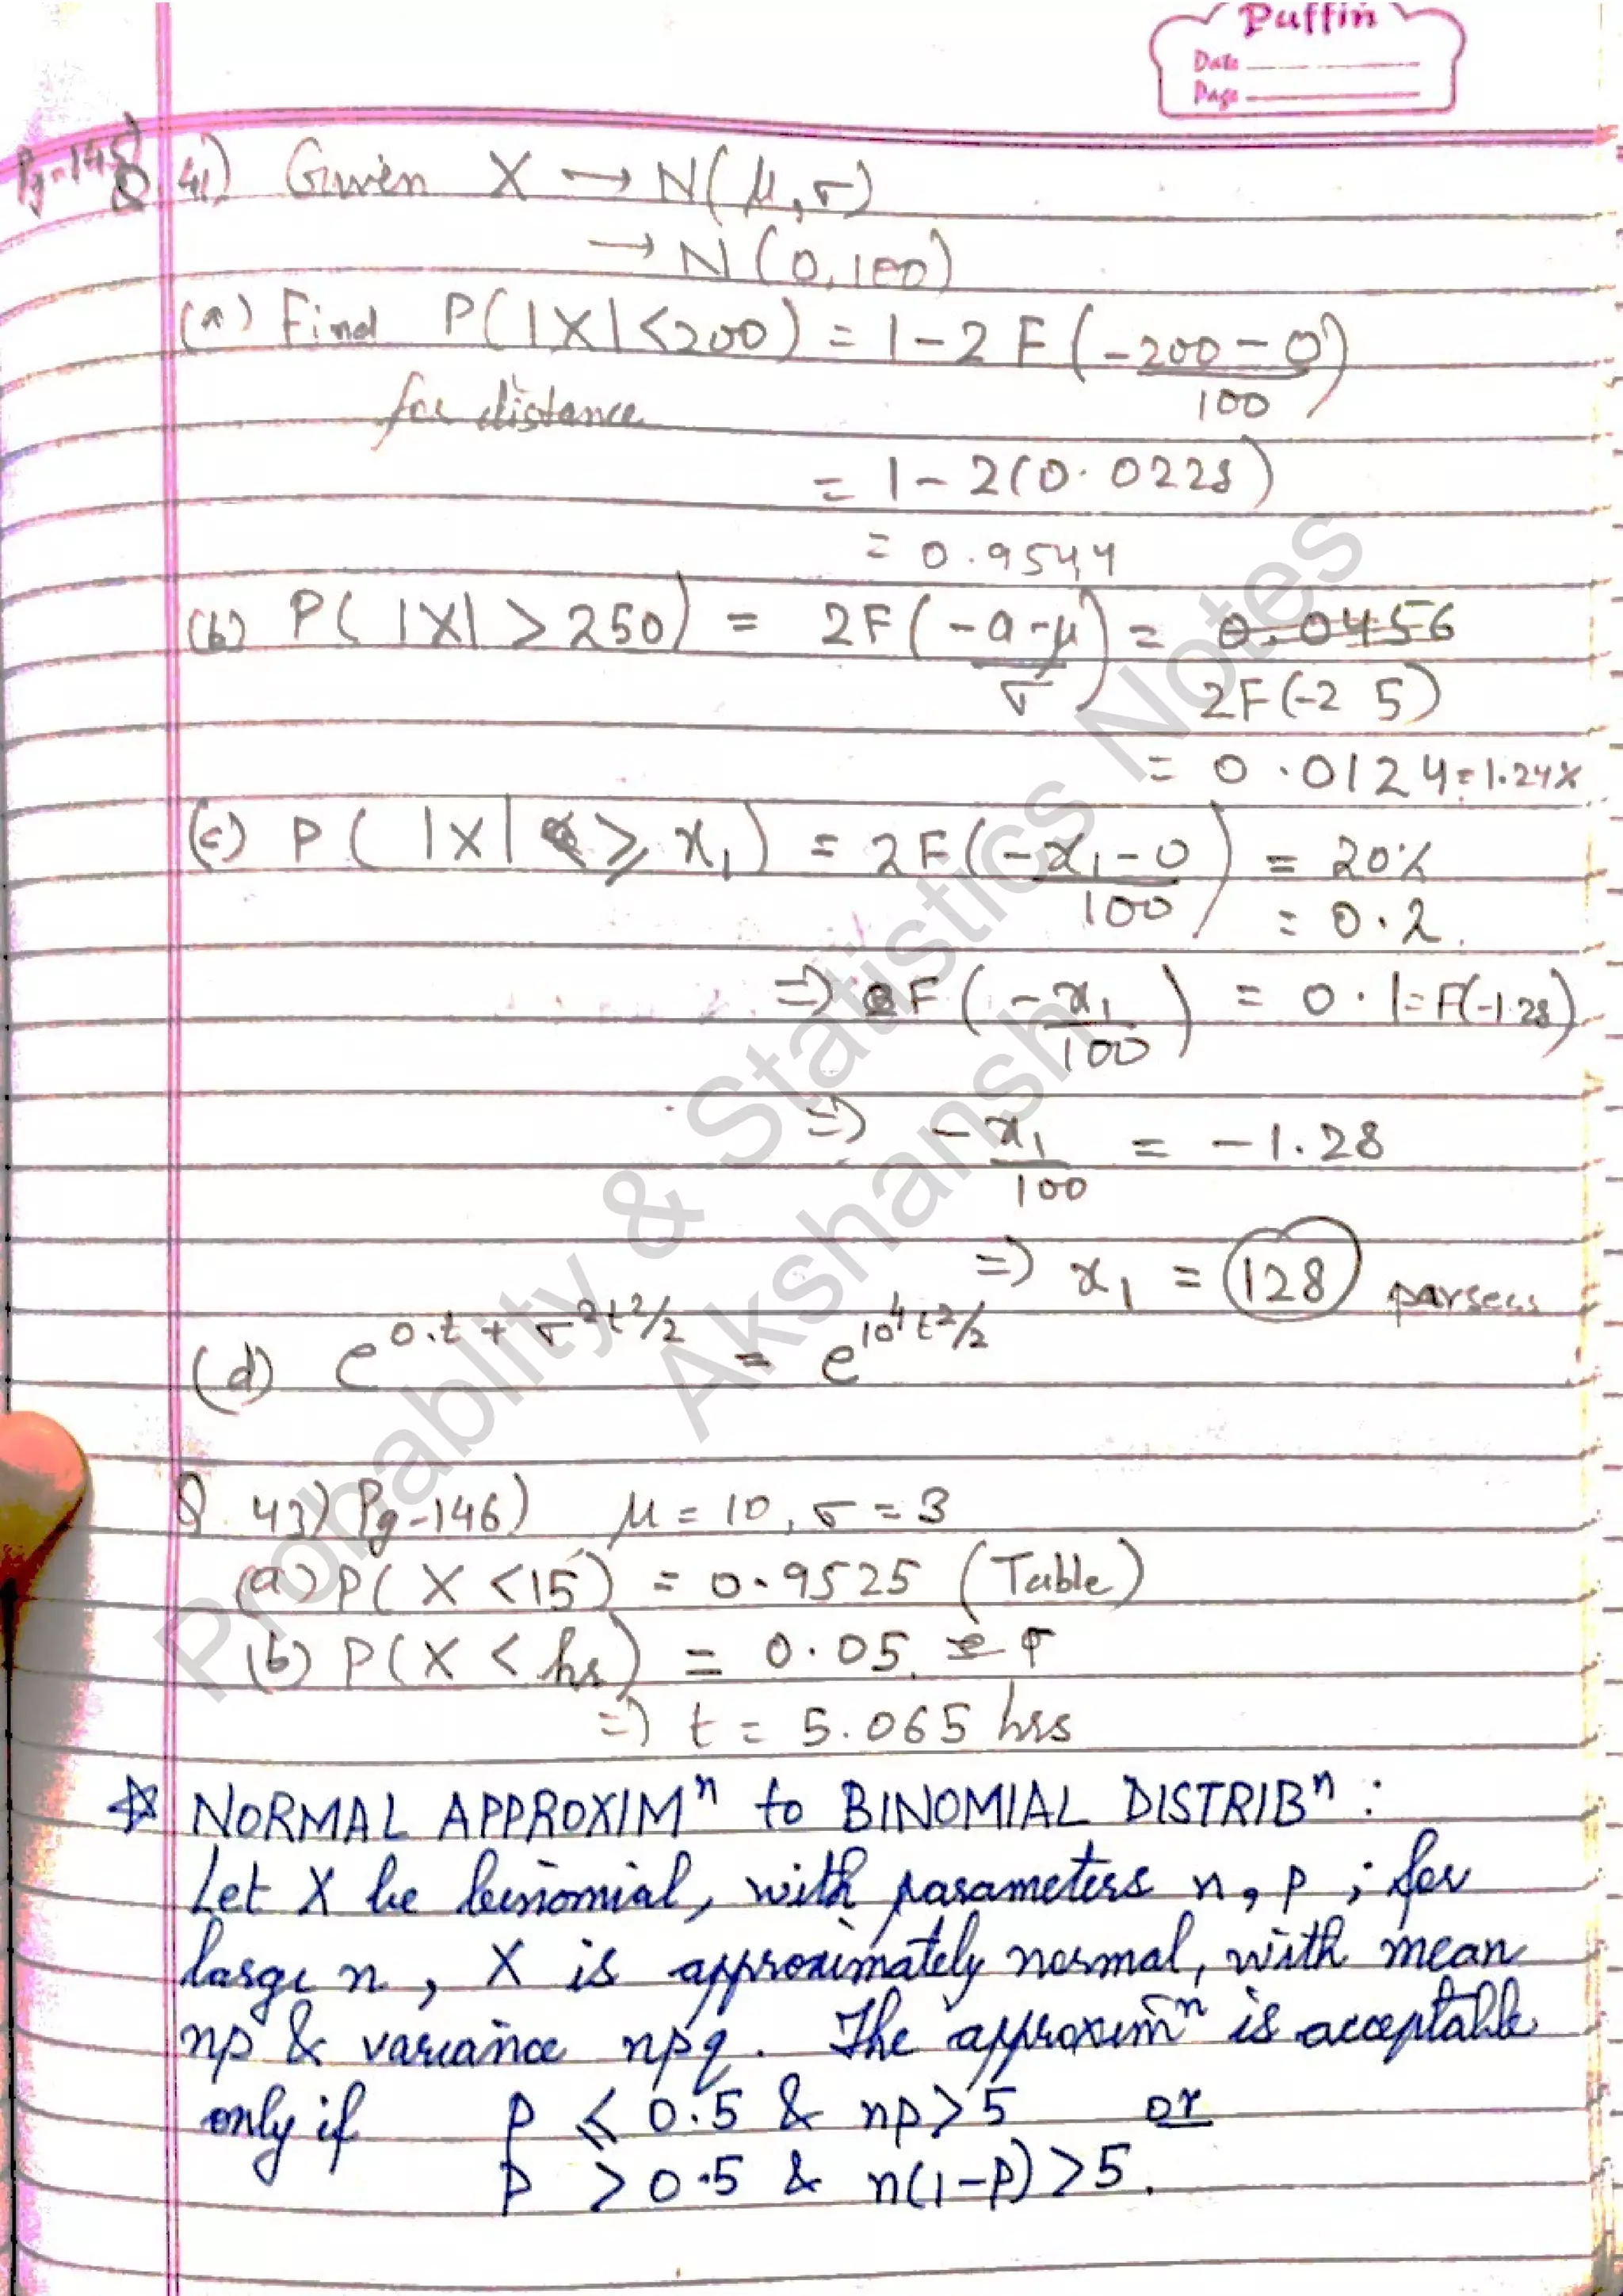 Puffin
Date
Page
Pg-145)
Q.41) Given X → N(μ,σ)
→ N(0,100)
(a) Find P(|X|<200) = 1-2 F(-200-0/100)
for distance
= 1-2(0.0228)
= 0.9544
(b) P(|X|>250) = 2F(-a-μ/σ) = 0.0456
2F(-2 5)
= 0.0124=1.24%
(c) P(|X| ≥ x₁) = 2F(-x₁-0/100) = 20%
= 0.2
⇒ F(-x₁/100) = 0.1=F(-1.28)
⇒ -x₁/100 = -1.28
⇒ x₁ = 128 parsecs
(d) e^0.t + σ²t²/2 = e^10⁴t²/2
Q 43) Pg-146) μ = 10, σ = 3
(a) P(X <15) = 0.9525 (Table)
(b) P(X < hr) = 0.05
⇒ t = 5.065 hrs
☆ NORMAL APPROXIMⁿ to BINOMIAL DISTRIBⁿ :
Let X be binomial, with parameters n, p ; for
large n, X is approximately normal, with mean
np & variance npq. The approximⁿ is acceptable
only if p ≤ 0.5 & np>5 or
p > 0.5 & n(1-p)>5.
Probablity & Statistics Notes
Akshansh